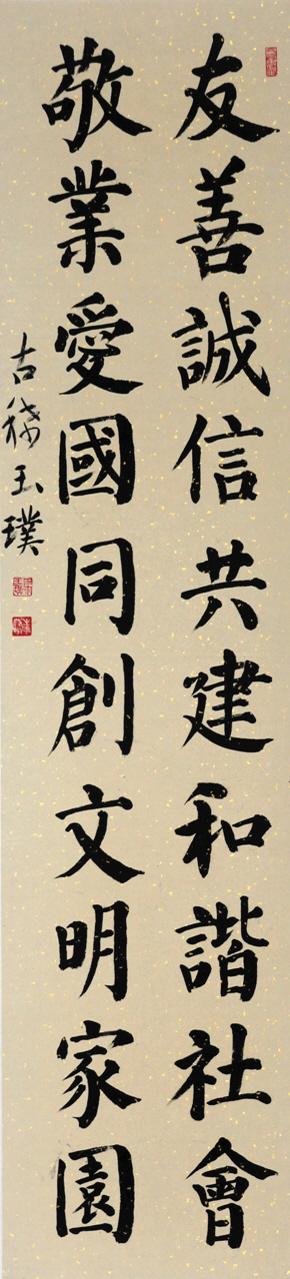 友善誠信共建和諧社會
敬業愛國同創文明家園
古穄玉璞